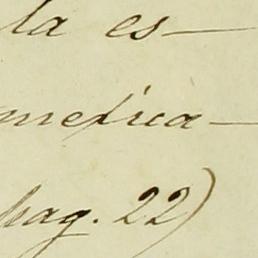 la es—
metica—
pag. 22)